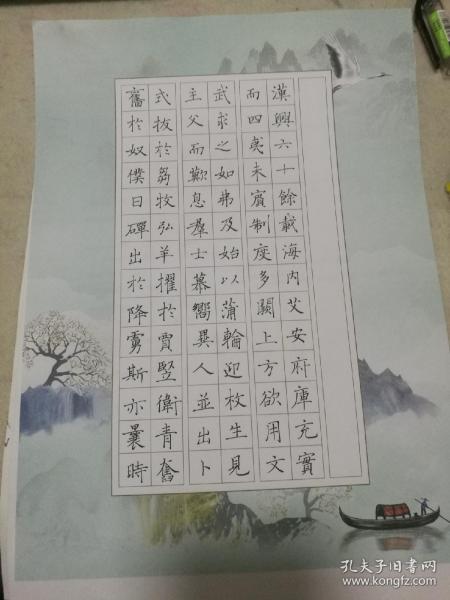 漢興六十餘載海内艾安府庫充實
而四夷未賓制度多闕上方欲用文
武求之如弗及始以蒲輪迎枚生見
主父而歎息羣士慕嚮異人並出卜
式拔於芻牧弘羊擢於賈竪衛青奮
舊於奴僕日磾出於降虜斯亦曩時
孔夫子旧书网
www.kongfz.com